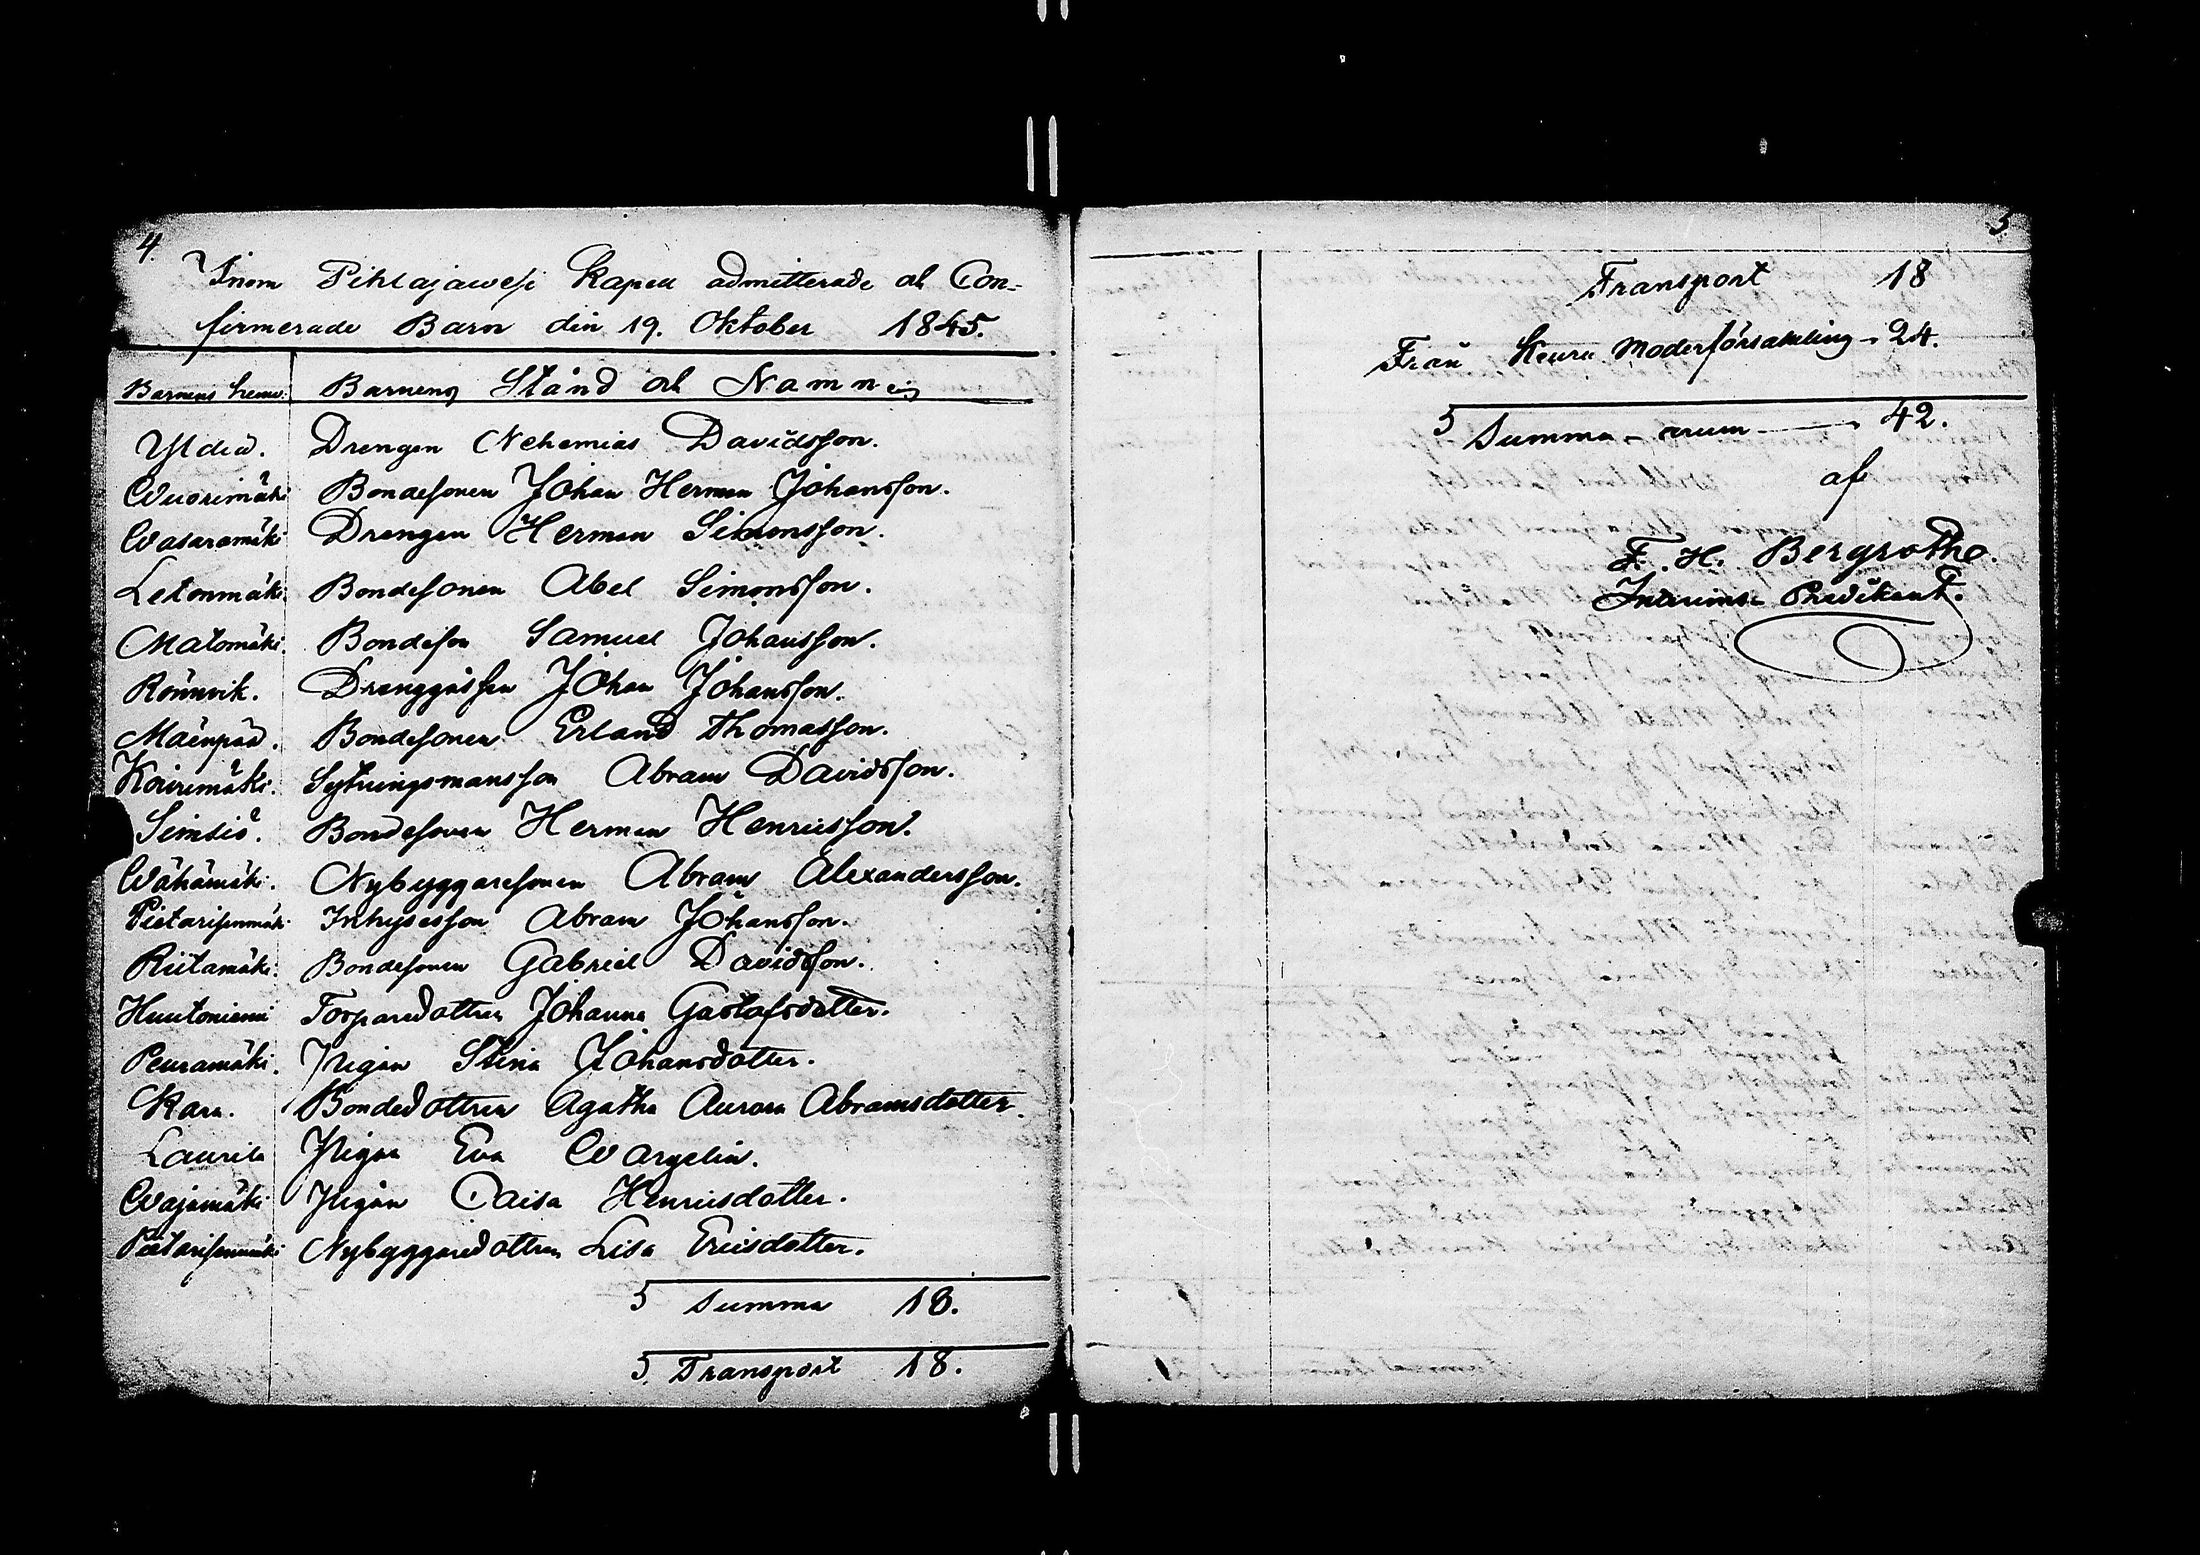 4.
Inom Pihlajawesi Kapell admitterade och Con-
firmerade Barn den 19. Oktober 1845.
Barnens hemv. Barnens Stånd och Namn
Yldia. Drengen Nehemias Davidsson.
Wuorimäki Bondesonen Johan Herman Johansson.
Wasaramäki Drengen Herman Simonsson.
Letonmäki. Bondesonen Abel Simonsson.
Matomäki. Bondeson Samuel Johansson.
Rönnvik. Drenggåssen Johan Johansson.
Mäenpää. Bondesonen Erland Thomasson.
Koivumäki. Sytningsmansson Abram Davidsson.
Simsiö. Bondesonen Herman Henricsson.
Wähämäki. Nybyggaresonen Abram Alexandersson.
Pietarisenmäki. Inhysesson Abram Johansson.
Riitamäki. Bondesonen Gabriel Davidsson.
Huutoniemi Torparedottren Johanna Gustafsdotter.
Peuramäki. Pigan Stina Johansdotter.
Kara. Bondedottren Agatha Aurora Abramsdotter.
Laurila Pigan Eva Wargelin.
Wajamäki Pigan Caisa Henricsdotter.
Pietarisenmäki Nybyggaredottren Lisa Ericsdotter.
S Summa 18.
S. Transport 18.
5
Transport 18
Från Keuru Moderförsamling - 24.
S Summa - rum 42.
af
F. H. Bergroth.
Interims Predikant.